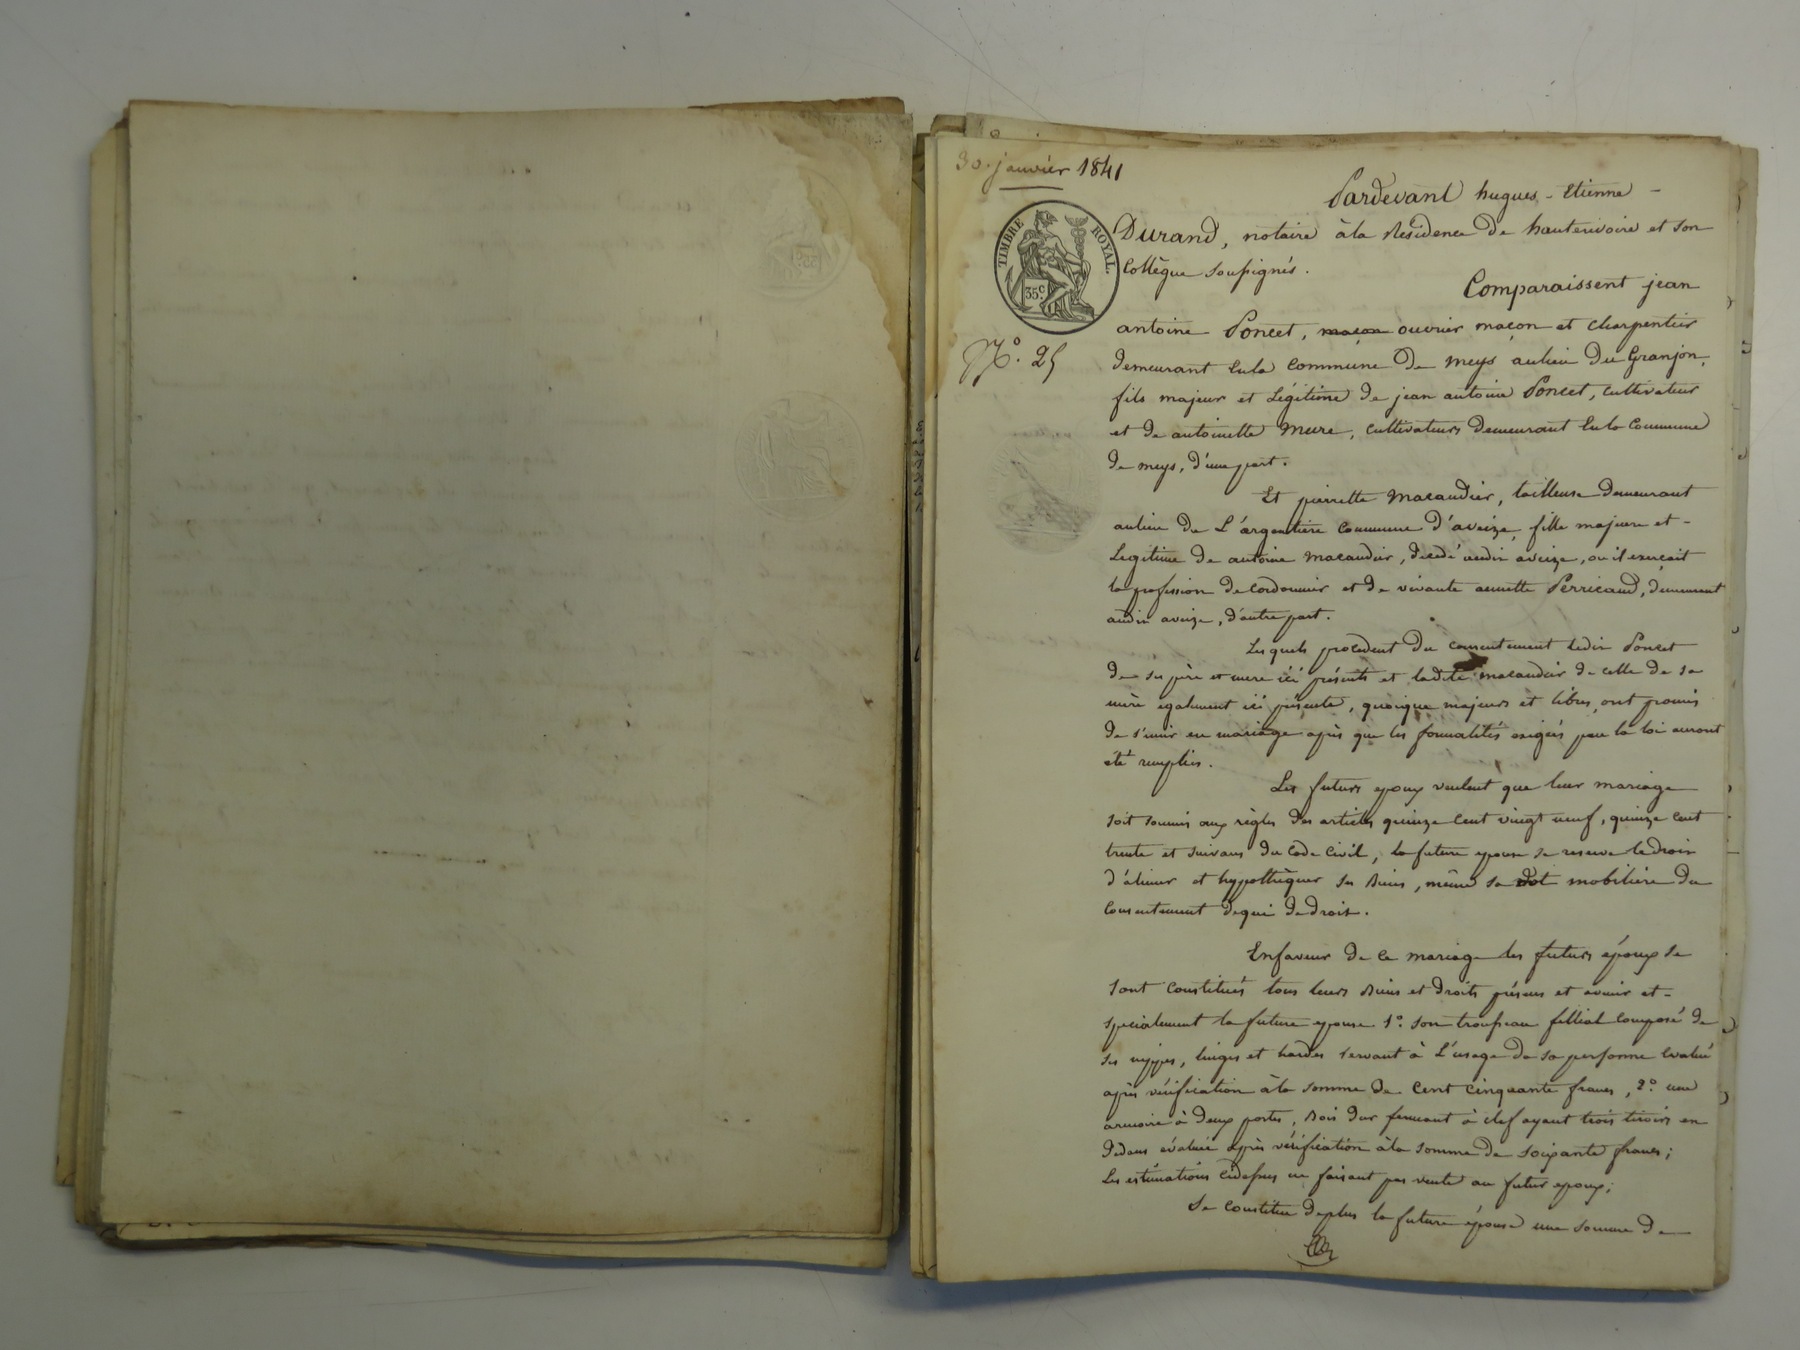 30. janvier 1841
Pardevant hugues-Etienne -
TIMBRE ROYAL
35c
N° 25
Durand, notaire à la Residence de hauterivoire et son
Collègue soussignés.
Comparaissent jean
antoine Poncet, maçon ouvrier maçon et charpentier
demeurant en la commune de meys au lieu du Granjon,
fils majeur et Légitime de jean antoine Poncet, cultivateur
et de antoinette Mure, cultivateurs demeurant en la Commune
de meys, d'une part.
Et pierrette Macaudier, tailleuse demeurant
au lieu de L'argentière commune d'aveize, fille majeure et -
Legitime de antoine Macaudier, décedé audit aveize, ou il exerçait
la profession de cordonnier et de vivante annette Perricaud, demeurant
audit aveize, d'autre part.
Lesquels procedent du consentement ledit Poncet
de ses père et mere ici présents et ladite macaudier de celle de sa
mère egalement ici présente, quoique majeurs et libres, ont promis
de s'unir en mariage après que les formalités exigées par la loi auront
été remplies.
Les futurs epoux veulent que leur mariage
soit soumis aux règles des articles quinze cent vingt neuf, quinze cent
trente et suivans du Code Civil, la future epouse se reserve le droit
d'aliener et hypothèquer ses Biens, même sa dot mobilière du
consentement de qui de droit.
En faveur de ce mariage les futurs époux se
sont constitués tous leurs Biens et droits présens et avenir et -
specialement la future epouse 1°. son trousseau fillial composé de
ses nippes, linges et hardes servant à L'usage de sa personne evalué
après vérification à la somme de cent cinquante francs, 2°. une
armoire à deux portes, Bois dur fermant à clef ayant trois tiroirs en
dedans évaluée après vérification à la somme de soixante francs;
Les estimations cidessus ne faisant pas vente au futur epoux;
Se constitue de plus la future épouse une somme de